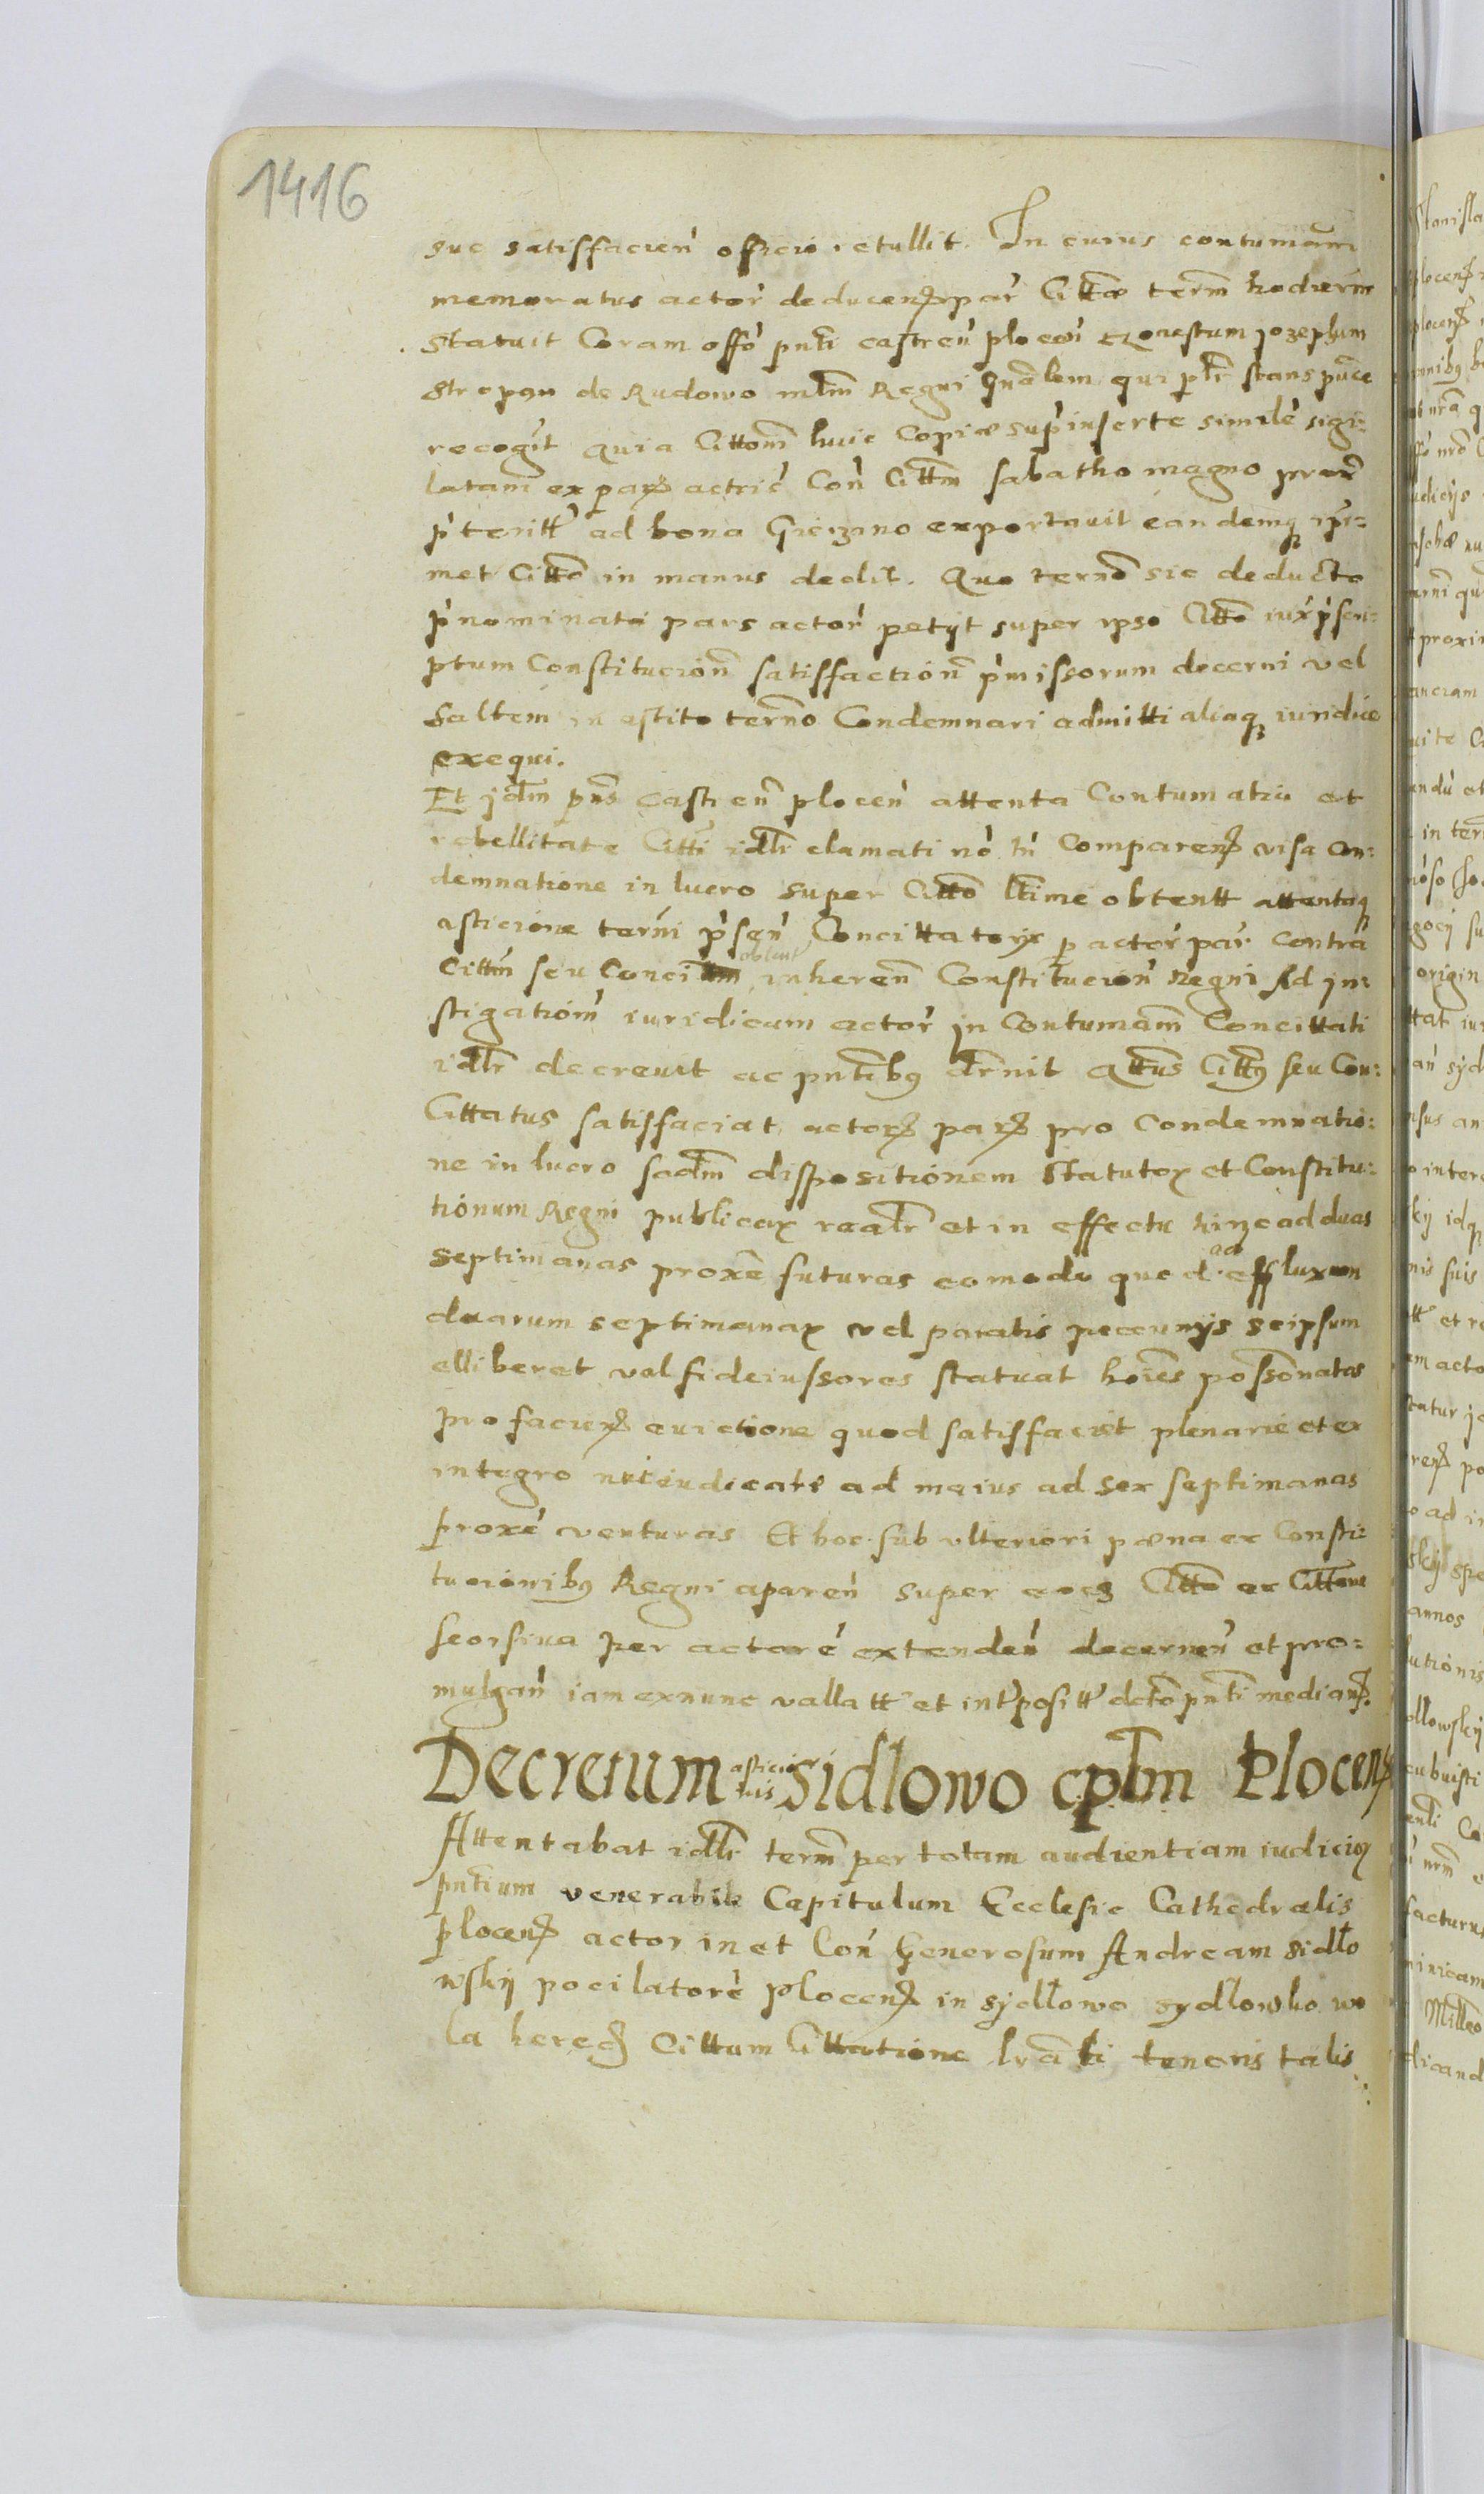 1416
suc satisfacien̄ officio retullit. In cuius contumām
memoratus actor̄ deducen̄ par̄ Citt̄ae term̄ hodiern̄e
Statuit Coram offō pn̄ti castren̄ plocen̄ Honestum jozephum
Stropan de Rudowo mlm̄ Regni Gn̄alem qui pr̄lr stans pub̄ce
recogit quia Citt̄om̄ huic Copiæ sup̄ inserte simile sigi:
latam ex par̄ actric̄ Con̄ Citt̄m̄ sabatho magno prox̄
p̄teritt̄ ad bona Giczino exportauit eandemq ipsi:
met Citt̄o in manus dedit. Quo ternō sic deducto
p̄nominata pars actor̄ petijt super ipso Citt̄o iux p̄scri:
ptum Constitucion̄ satisfaction̄ p̄missorum decerni vel
Saltem in astito ternō Condemnari admitti aliaq iuridice
exequi.
Et jdm̄ pn̄s Castren̄ plocen̄ attenta Contumatia et
rebellitate Citt̄i idlr̄ clamati nō tn̄ Comparen̄ visa con:
demnatione in lucro super Citt̄o lt̄ime obtentt attentaq
asticione terni p̄sen̄ Concittatorÿs p actor̄ par̄ contra
Cittm̄ seu Concitt̄m obtent inheren̄ Constitucion̄ Regni Ad jn:
stigatiom̄ iuridicam actor̄ in Contumām Concittati
idlr̄ decreuit ac pn̄tibq dr̄nit Quatt̄us Citt̄q seu Con:
Cittatus satisfaciat actor̄ par̄ pro Condemnatio:
ne in lucro sadm̄ dispositionem Statutor et Constitu:
tionum Regni publicar realr̄ et in effectu hinc ad duas
septimanas proxē futuras eo modo quod ad effluxum
duarum septimanar vel paratis peccunÿs seipsum
elliberet vel fideiussores statuat hoiēs possōnatos
pro facien̄ euictione quod satisfaciet plenarie et ex
integro rei iudicate ad maius ad sex septimanas
proxē venturas Et hoc sub vlteriori pœna ex Consti:
tucionibq Regni aparen̄ super eos Citt̄o ex Citt̄one
seorsiua per actorē extenden̄ decernen̄ et pro:
mulgan̄ iam exnunc vallatt̄ et interpositt̄ dctō pn̄ti median̄.
Decretum asticio nis sidlowo cplm̄ Plocen̄
Attentabat idlr̄ term̄ per totam audientiam iudicior
pn̄tium venerabile Capitulum Ecclesie Cathedralis
plocen̄ actor in et Con̄ Generosum Andream sidło
wskij pocilatorē Plocen̄ in sydłowo sydłowko wo
la hered̄ Cittum Cittatione lrāli tenoris talis